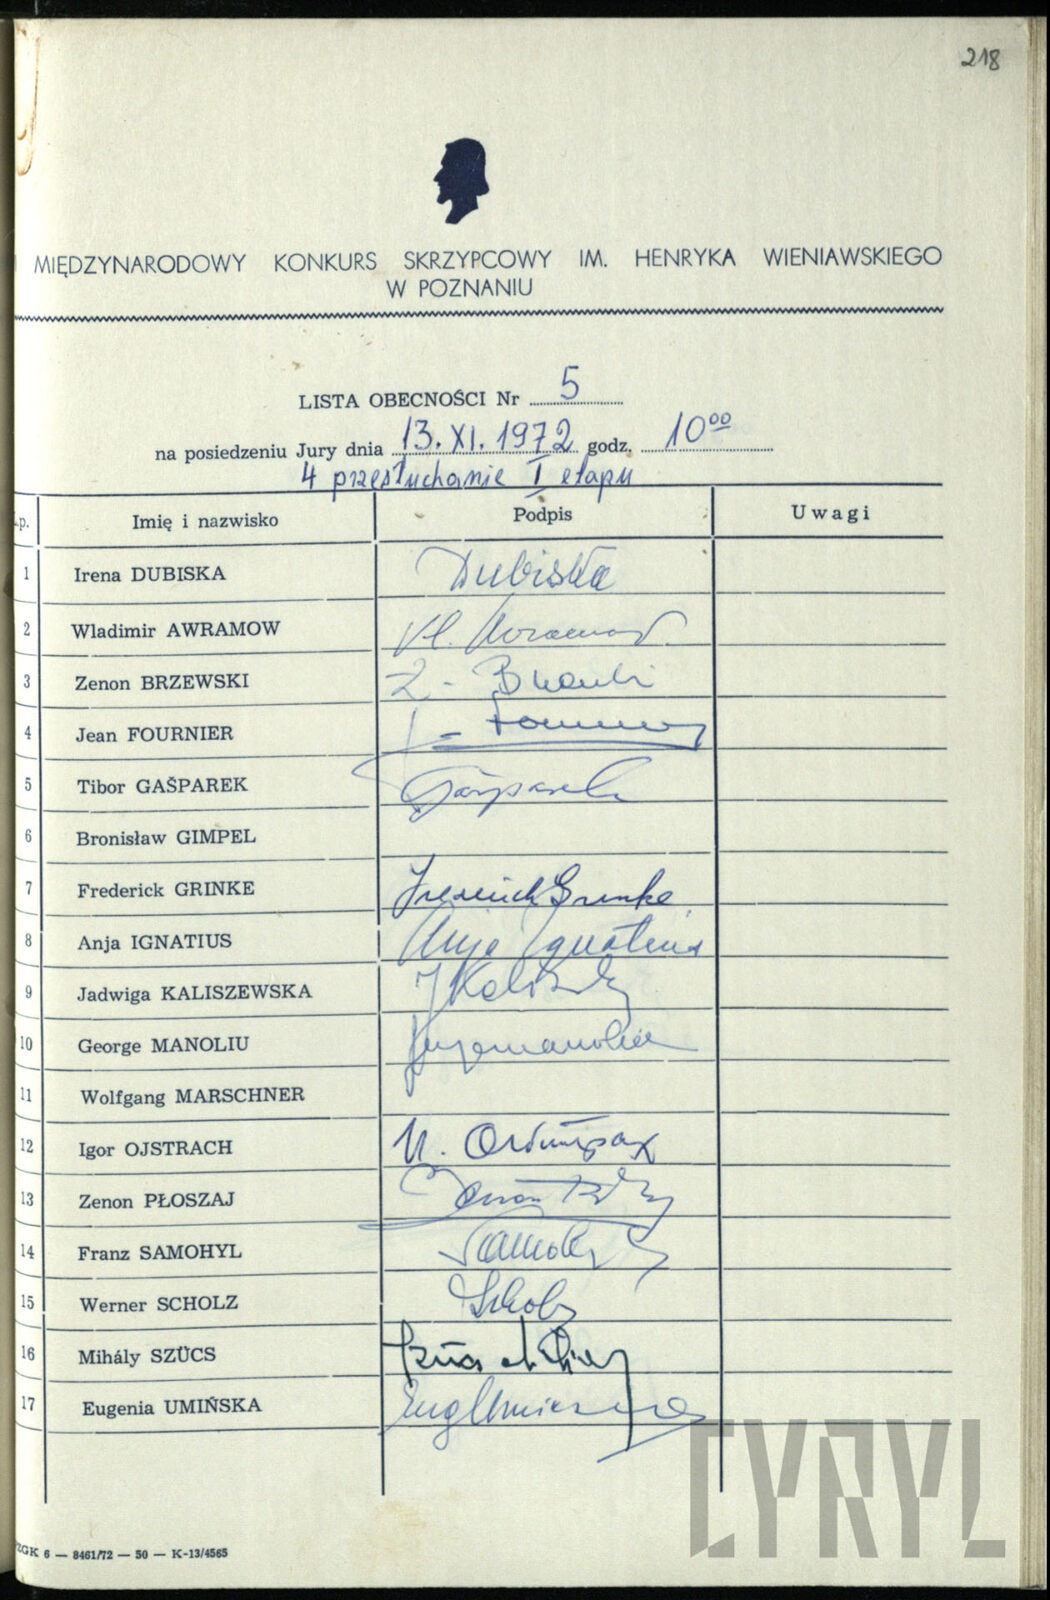 218
MIĘDZYNARODOWY KONKURS SKRZYPCOWY IM. HENRYKA WIENIAWSKIEGO
W POZNANIU
LISTA OBECNOŚCI Nr 5
na posiedzeniu Jury dnia 13. XI. 1972 godz. 10⁰⁰
4 przesłuchanie I etapu
Lp. Imię i nazwisko Podpis Uwagi
1 Irena DUBISKA Dubiska
2 Wladimir AWRAMOW Vl.
3 Zenon BRZEWSKI Z.
4 Jean FOURNIER
5 Tibor GAŠPAREK Gašparek
6 Bronisław GIMPEL
7 Frederick GRINKE Frederick Grinke
8 Anja IGNATIUS Anja Ignatius
9 Jadwiga KALISZEWSKA
10 George MANOLIU
11 Wolfgang MARSCHNER
12 Igor OJSTRACH И. Ойстрах
13 Zenon PŁOSZAJ Zenon
14 Franz SAMOHYL Samohyl
15 Werner SCHOLZ Scholz
16 Mihály SZÜCS
17 Eugenia UMIŃSKA Eug Umińska
PZGK 6 — 8461/72 — 50 — K-13/4565
CYRYL